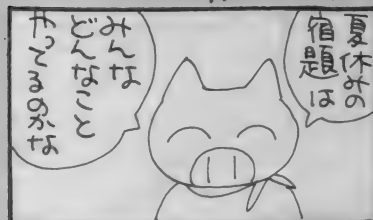 夏休みの
宿題は
みんな
どんなこと
やってるのかな